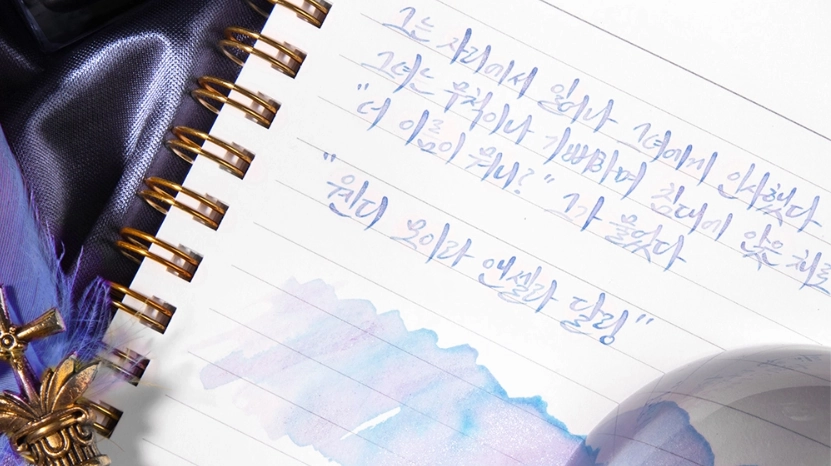 그는 자리에서 일어나 그녀에게 인사했다
그녀는 무척이나 기뻐하며 침대에 앉은 채로
"너 이름이 뭐니?" 그가 물었다
"웬디 모이라 앤젤라 달링"